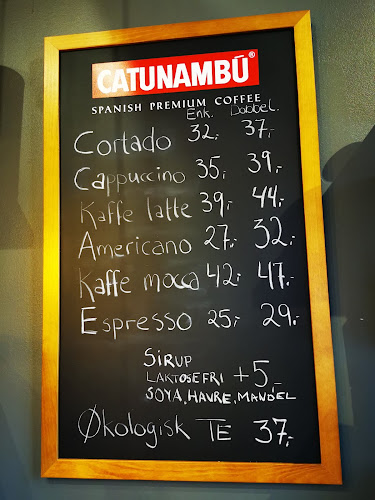 CATUNAMBÚ®
SPANISH PREMIUM COFFEE
Enk. Dobbel.
Cortado 32,- 37,-
Cappuccino 35,- 39,-
Kaffe latte 39,- 44,-
Americano 27,- 32,-
Kaffe mocca 42,- 47,-
Espresso 25,- 29,-
SIRUP
LAKTOSEFRI +5,-
SOYA, HAVRE, MANDEL
Økologisk TE 37,-